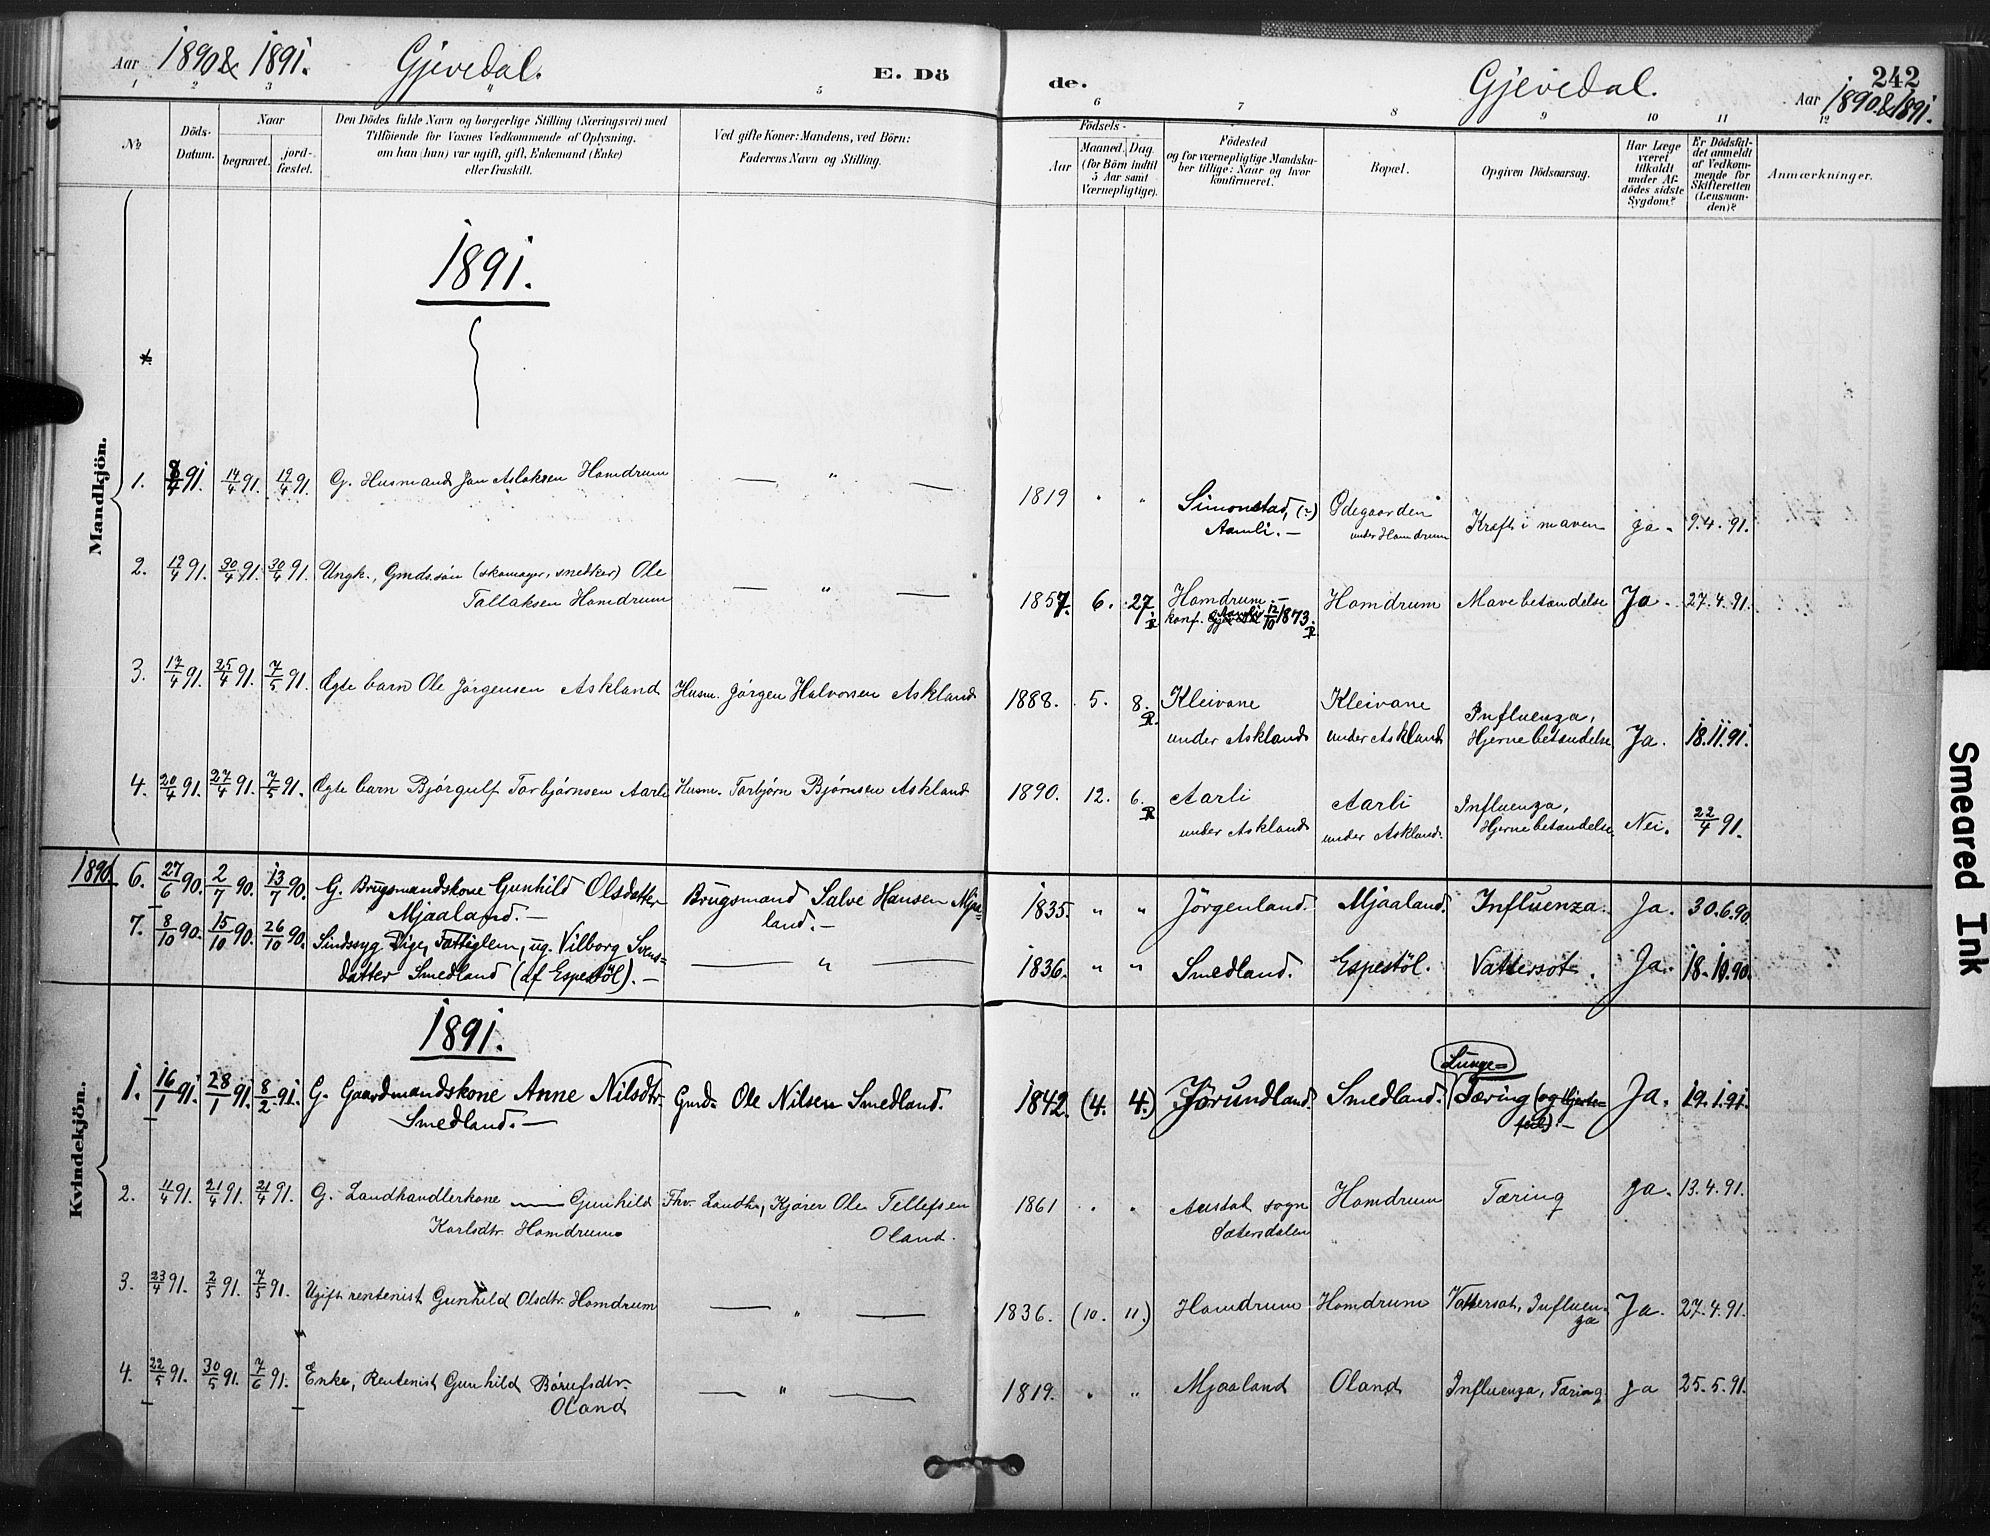 Aar 1890 & 1891. Gjevedal. E. Dö
de. Gjevedal. Aar 1890 & 1891. 242
1 2 3 4 5 6 7 8 9 10 11 12
No
Döds-Datum.
Naar
begravet.
jord-fæstet.
Den Dödes fulde Navn og borgerlige Stilling (Næringsvei) med
Tilföiende for Voxnes Vedkommende af Oplysning,
om han (hun) var ugift, gift, Enkemand (Enke)
eller fraskilt.
Ved gifte Koner: Mandens, ved Börn:
Faderens Navn og Stilling.
Födsels-
Aar
Maaned. Dag
(for Börn indtil
5 Aar samt
Værnepligtige).
Födested
og for værnepligtige Mandska-
ber tillige: Naar og hvor
konfirmeret.
Bopæl.
Opgiven Dödsaarsag.
Har Læge
været
tilkaldt
under Af-
dödes sidste
Sygdom?
Er Dödsfal-
det anmeldt
af Vedkom-
mende for
Skifteretten
(Lensman-
den)?
Anmærkninger.
Mandkjön.
1891.
1. 8/4 91. 14/4 91. 19/4 91. G. Husmand Jon Aslaksen Homdrum — " — 1819 " " Simonstad, (?) Aamli. — Ödegaarden under Homdrum Kræft i maven ja. 9.4.91.
2. 19/4 91. 30/4 91. 30/4 91. Ungk., Gmds.søn (skomager, snedker) Ole
Tallaksen Homdrum — " — 1857. 6. 27. Homdrum. —
konf. Aamli 12/10 1873. Homdrum Mavebetændelse Ja. 27.4.91.
3. 17/4 91. 25/4 91. 7/5 91. Ægte barn Ole Jørgensen Askland Husm. Jørgen Halvorsen Askland 1888. 5. 8. Kleivane
under Askland Kleivane
under Askland Influenza,
Hjernebetændelse Ja. 18.11.91.
4. 20/4 91. 27/4 91. 7/5 91. Ægte barn Bjørgulf Torbjørnsen Aarli Husm. Torbjørn Bjørnsen Askland 1890. 12. 6. Aarli
under Askland Aarli
under Askland. Influenza,
Hjernebetændelse Nei. 22/4 91.
1890
6. 27/6 90. 2/7 90. 13/7 90. G. Brugsmandskone Gunhild Olsdatter
Mjaaland. — Brugsmand Salve Hansen Mjaa-
land. — 1835. " " Jörgenland. Mjaaland. Influenza. Ja. 30.6.90.
7. 8/10 90. 15/10 90. 26/10 90. Sindssyg Pige, Fattiglem, ug. Vilborg Svens-
datter Smedland (af Espestöl). — — " — 1836. " " Smedland. Espestöl. Vattersot. Ja. 18.10.90.
Kvindekjön.
1891.
1. 16/1 91. 28/1 91. 8/2 91. G. Gaardmandskone Anne Nilsdtr.
Smedland. — Gmd. Ole Nilsen Smedland. 1842. (4. 4.) Jörundland. Smedland. Lunge-
Tæring (og Hjerte-
feil). — Ja. 19.1.91.
2. 11/4 91. 21/4 91. 21/4 91. G. Landhandlerkone — Gunhild
Karlsdtr. Homdrum Fhv. Landh., Kjører Ole Tellefsen
Oland. 1861 " " Austat sogn
Sætersdalen Homdrum Tæring ja. 13.4.91.
3. 23/4 91. 2/5 91. 7/5 91. Ugift rentenist Gunhild Olsdtr. Homdrum — " — 1836. (10. 11.) Homdrum Homdrum Vattersot, Influen-
za Ja. 27.4.91.
4. 22/5 91. 30/5 91. 7/6 91. Enke, Rentenist Gunhild Börufsdtr.
Oland — " — 1819. " " Mjaaland Oland Influenza, Tæring ja 25.5.91.
Smeared Ink